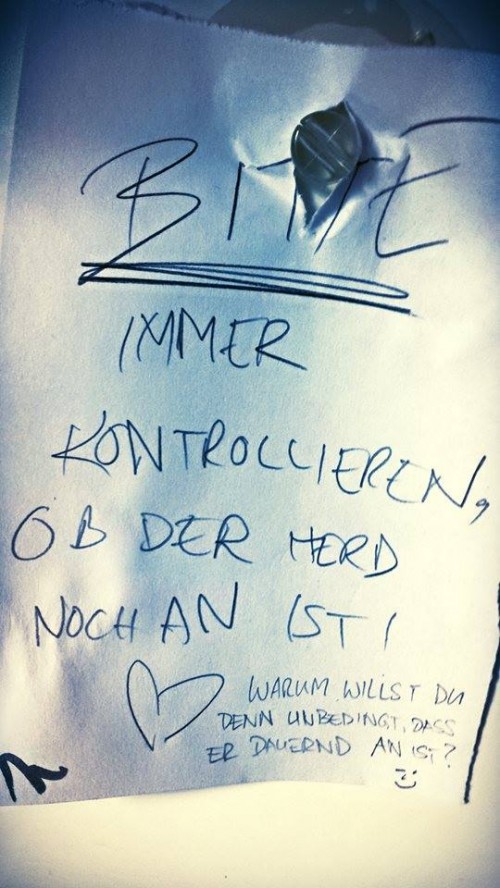 BITTE
IMMER
KONTROLLIEREN,
OB DER HERD
NOCH AN IST!
WARUM WILLST DU
DENN UNBEDINGT, DASS
ER DAUERND AN IST?